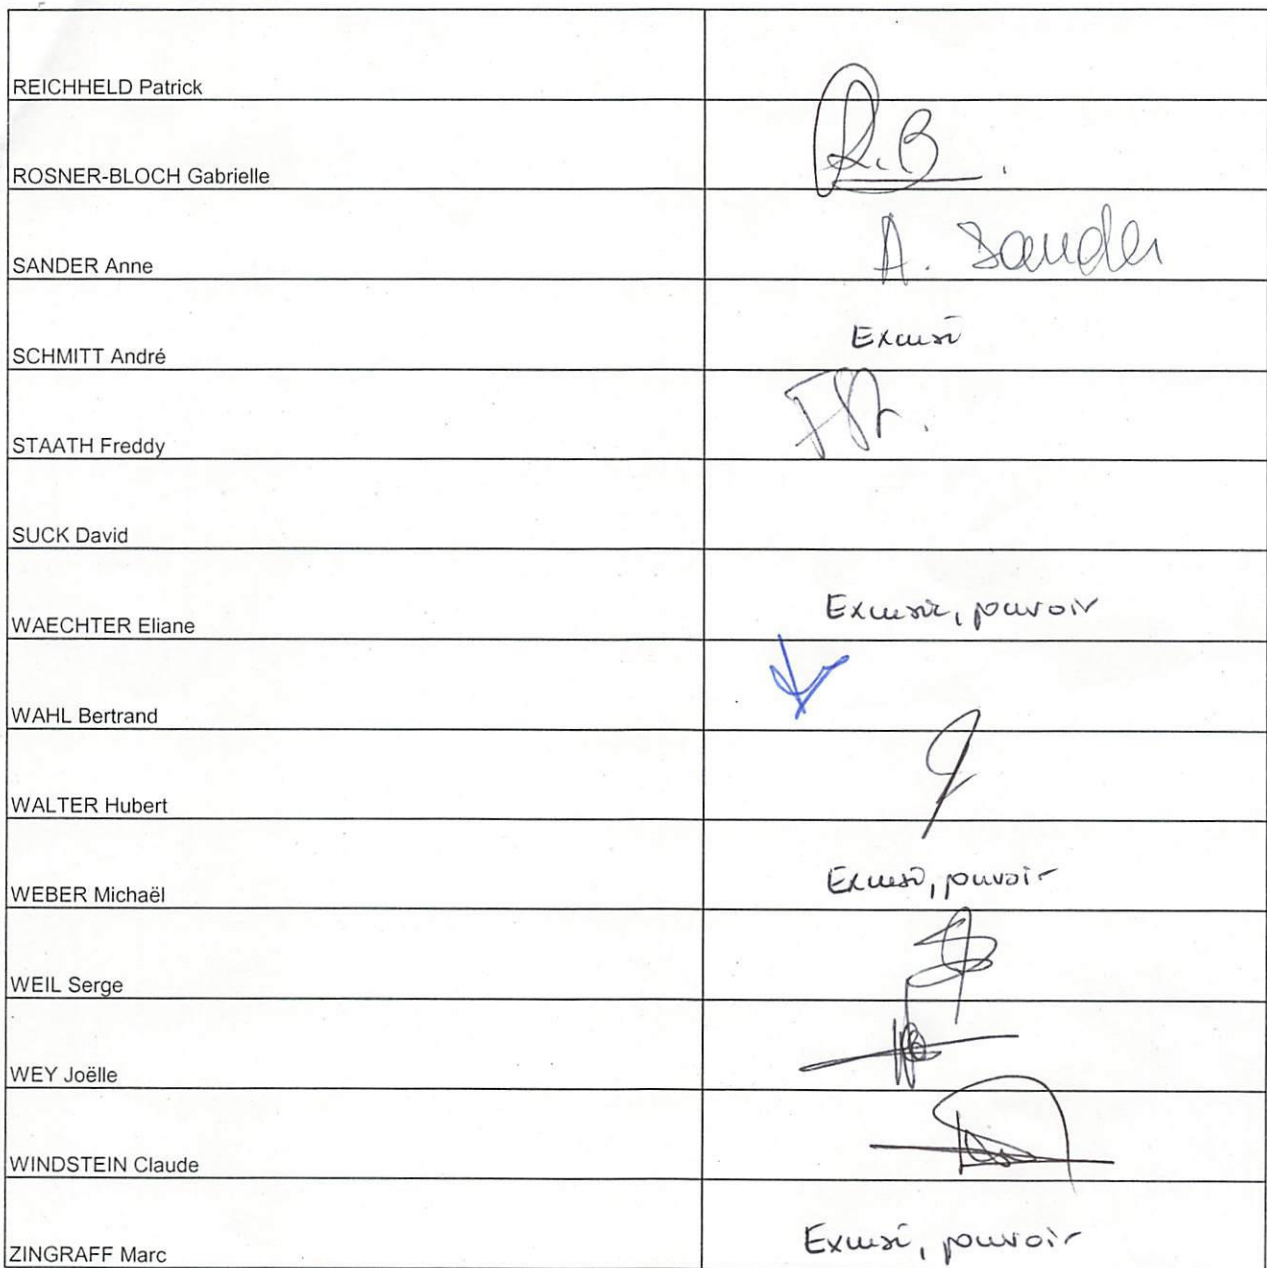 REICHHELD Patrick
ROSNER-BLOCH Gabrielle
R.B.
SANDER Anne
A. Sander
SCHMITT André
Excusé
STAATH Freddy
SUCK David
WAECHTER Eliane
Excusée, pouvoir
WAHL Bertrand
WALTER Hubert
WEBER Michaël
Excusé, pouvoir
WEIL Serge
WEY Joëlle
WINDSTEIN Claude
ZINGRAFF Marc
Excusé, pouvoir